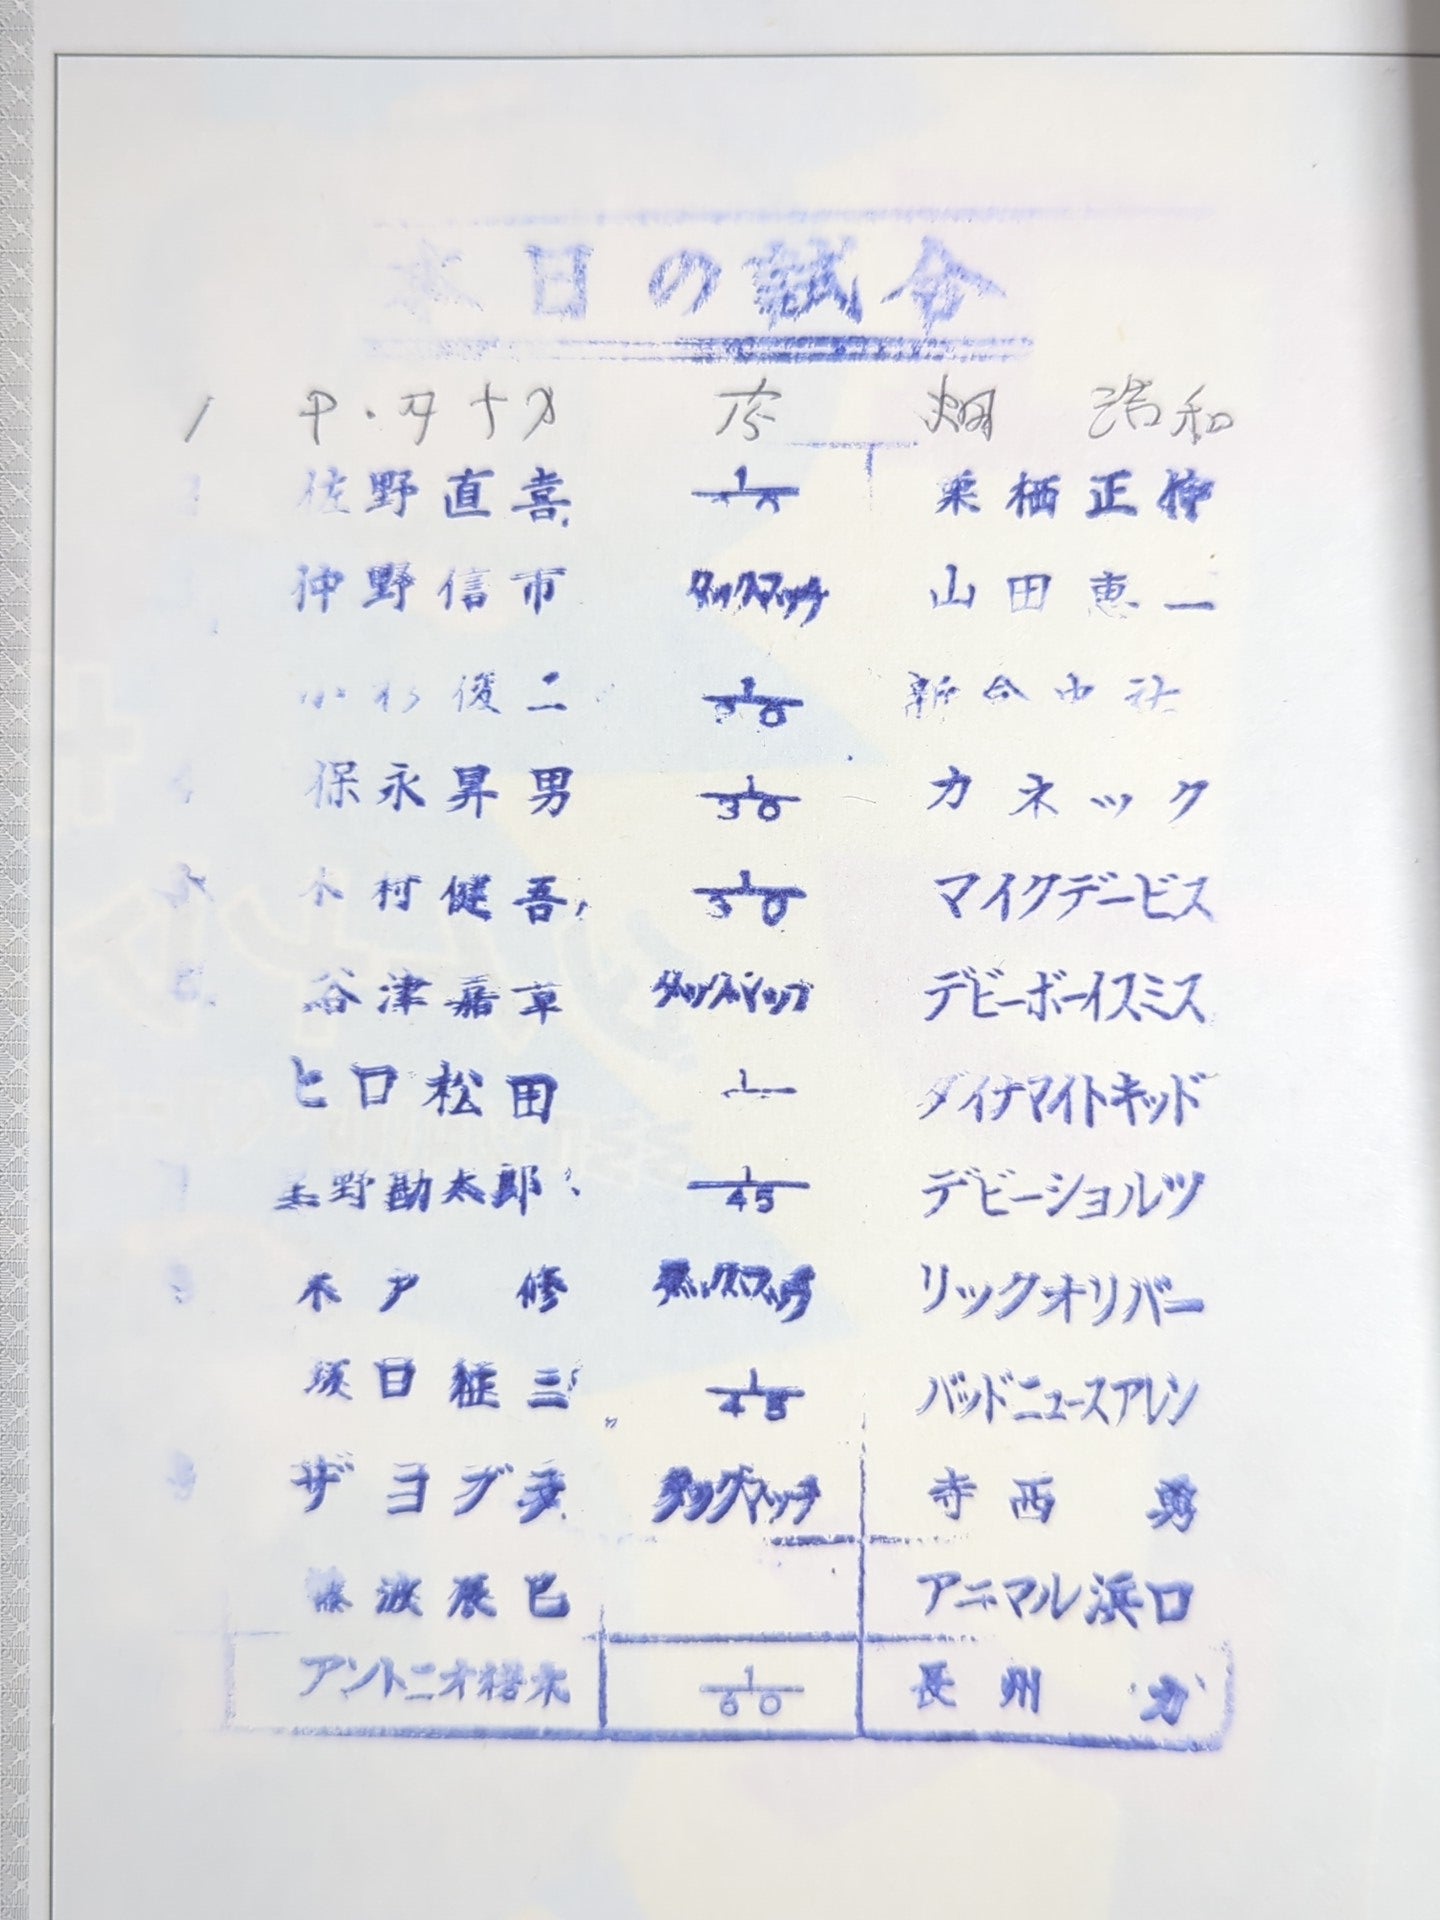 本日の試合
1 P・タナカ 畑 浩和
佐野直喜 1 栗栖正伸
仲野信市 タッグマッチ 山田恵一
小杉俊二 1/30 新倉史祐
保永昇男 1/30 カネック
木村健吾 1/30 マイクデービス
谷津嘉章 タッグマッチ デビーボーイスミス
ヒロ松田 1 ダイナマイトキッド
星野勘太郎 1/45 デビーショルツ
木戸 修 タッグマッチ リックオリバー
坂口征二 1/45 バッドニュースアレン
ザコブラ タッグマッチ 寺西 勇
8 藤波辰巳 アニマル浜口
アントニオ猪木 1/60 長州 力